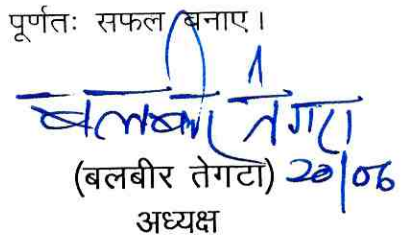 पूर्णतः सफल बनाए।
बलबीर तेगटा
(बलबीर तेगटा) 20/06
अध्यक्ष